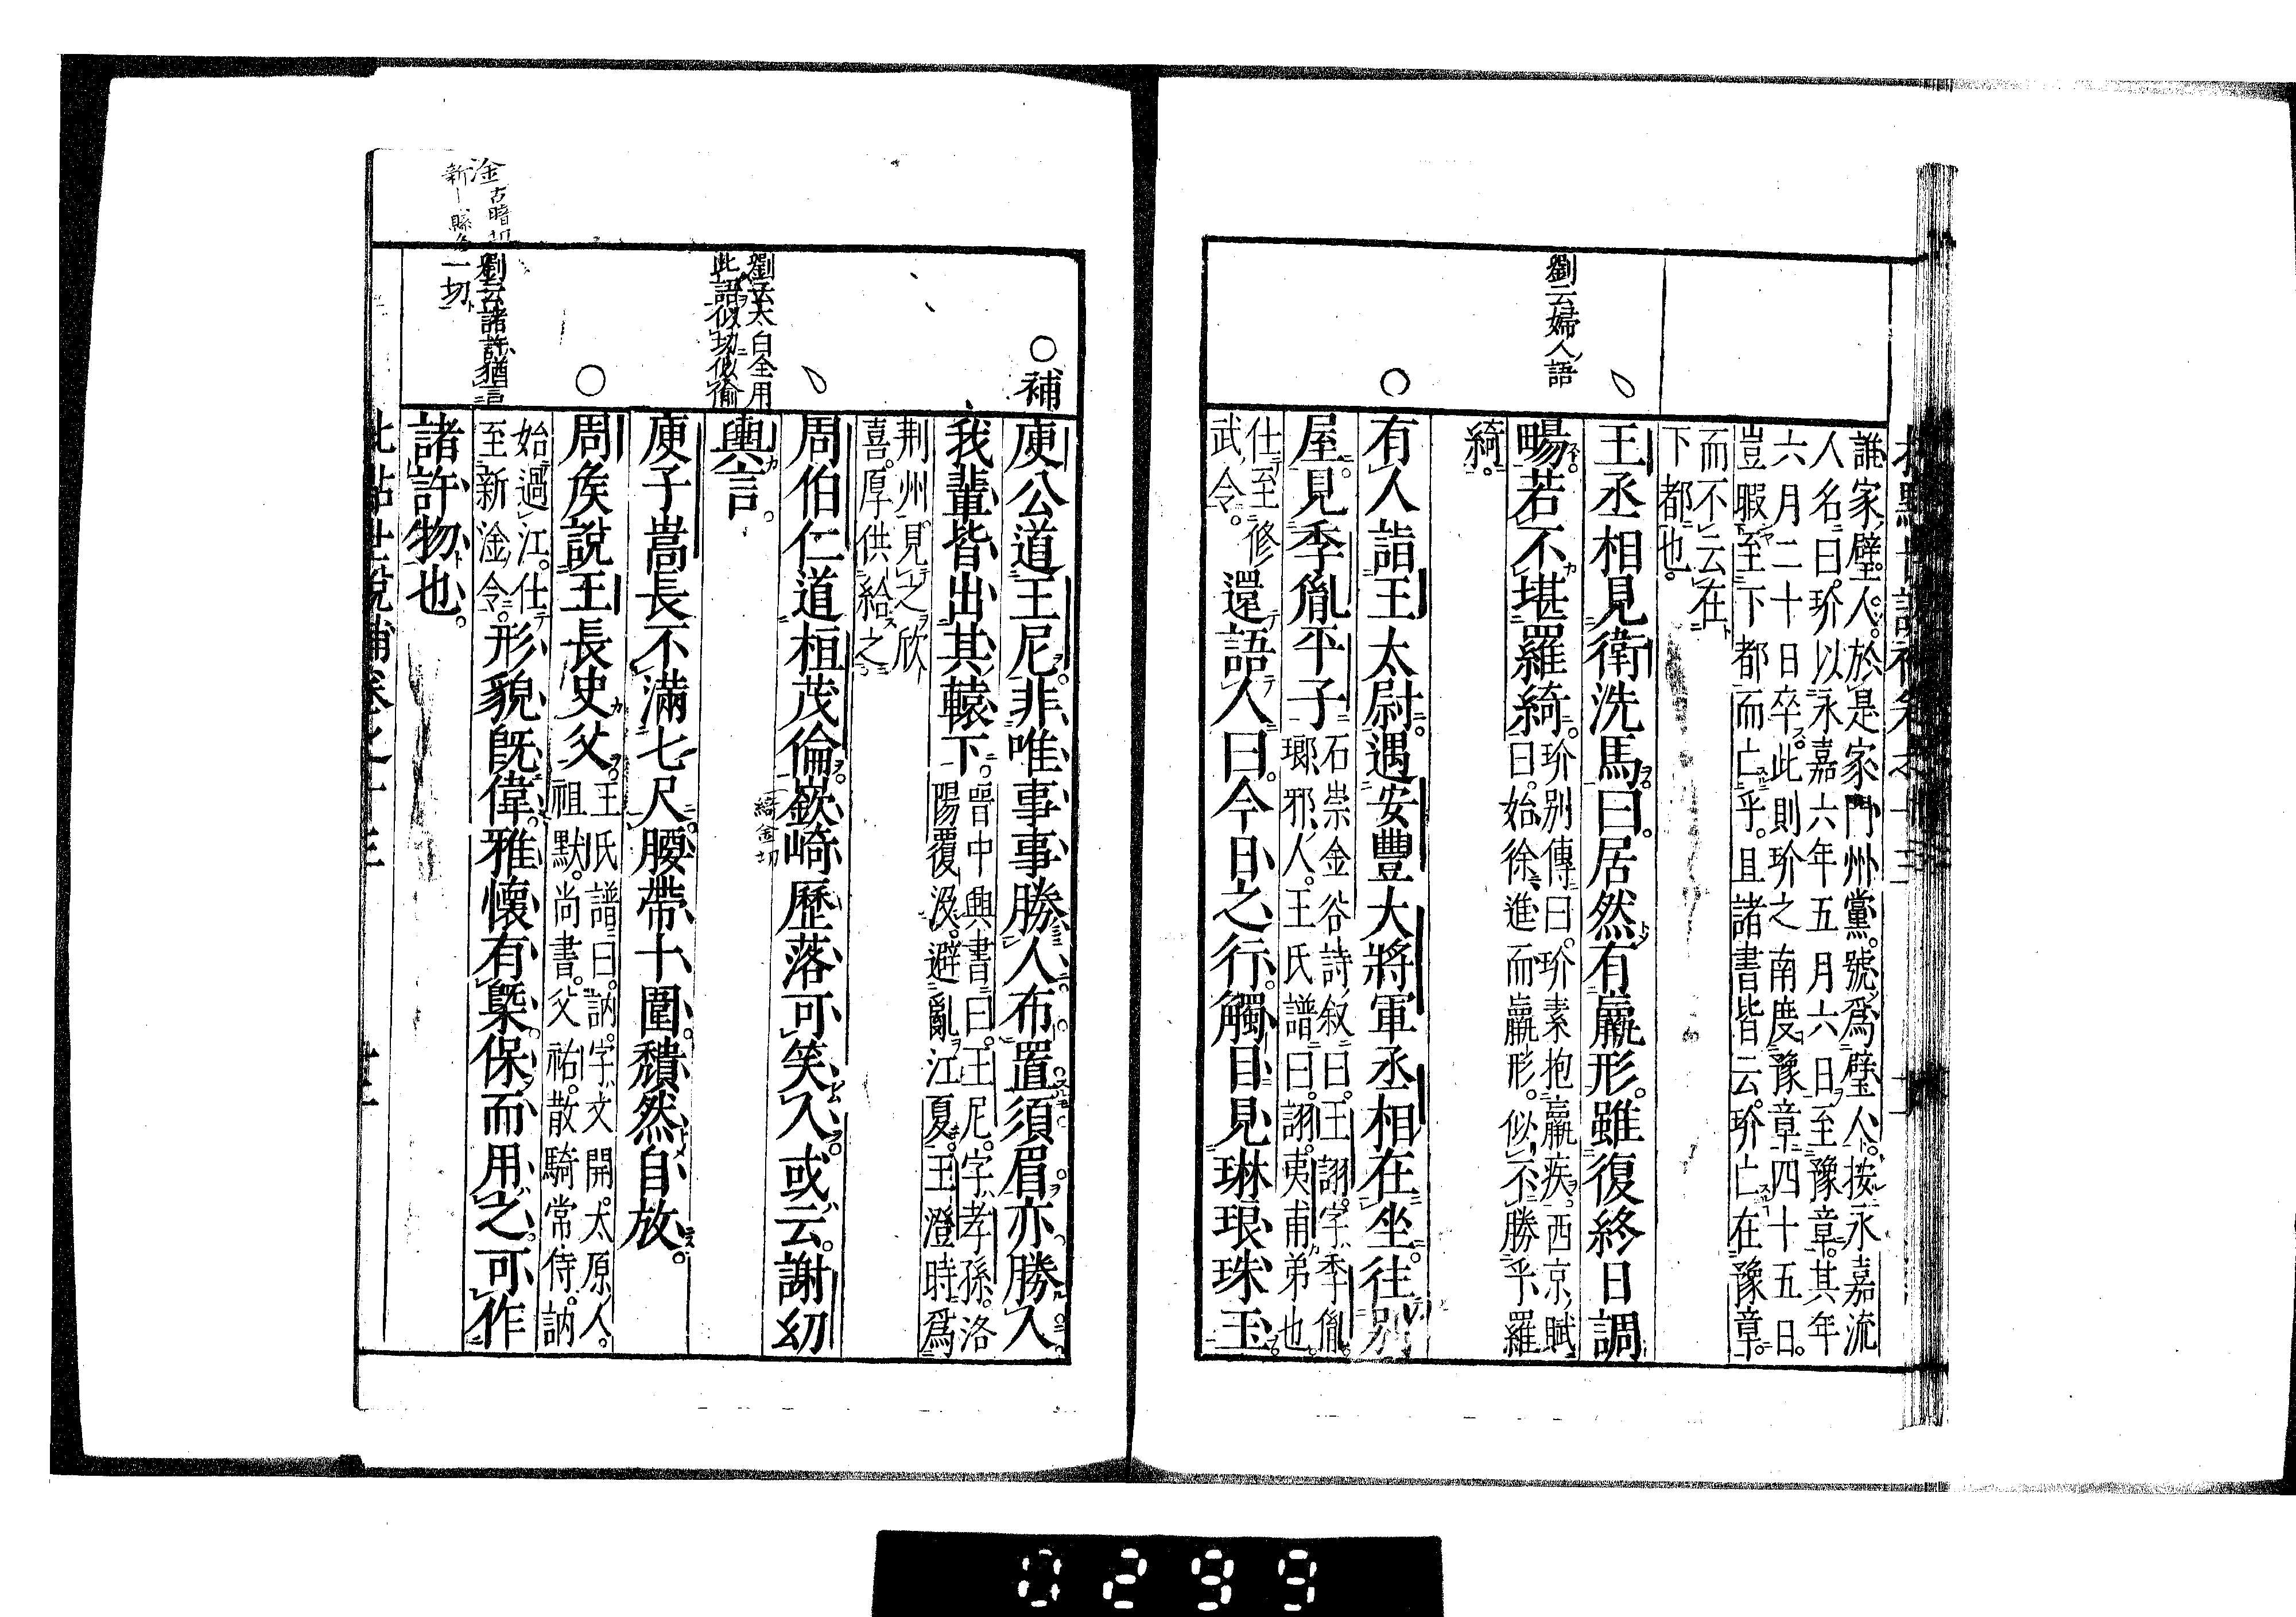 誰家璧人。於是家門州黨。號爲璧人。按永嘉流
人名曰。玠以永嘉六年五月六日至豫章。其年
六月二十日卒。此則玠之南度豫章四十五日。
豈暇至下都而亡乎。且諸書皆云。玠亡在豫章。
而不云在
下都也。
劉云婦人語
王丞相見衛洗馬曰。居然有羸形。雖復終日調
暢。若不堪羅綺。
玠别傳曰。玠素抱羸疾。西京賦
曰。始徐進而羸形。似不勝乎羅
綺。
有人詣王太尉。遇安豐大將軍丞相在坐。往别
屋。見季胤平子
石崇金谷詩叙曰。王詡。字季胤。
瑯邪人。王氏譜曰。詡。夷甫弟也。
仕至修
武令。
還語人曰。今日之行。觸目見琳琅珠玉。
補
庾公道王尼。非唯事事勝人。布置須眉亦勝人。
我輩皆出其轅下。
晉中興書曰。王尼。字孝孫。洛
陽覆没。避亂江夏。王澄時爲
荆州。見之欣
喜。厚供給之。
劉云太白全用
此語似切似偷
周伯仁道桓茂倫。嶔崎歷落可笑人。或云。謝幼
綺金切
輿言。
庾子嵩長不滿七尺。腰帶十圍。頹然自放。
周侯說王長史父。
王氏譜曰。訥。字文開。太原人。
祖默。尚書。父祐。散騎常侍。訥
始過江。仕
至新淦令。
形貌既偉。雅懷有槩。保而用之。可作
劉云諸許猶言
一切
諸許物也。
淦古暗切
新一縣名
批點世說補卷之十三
0299